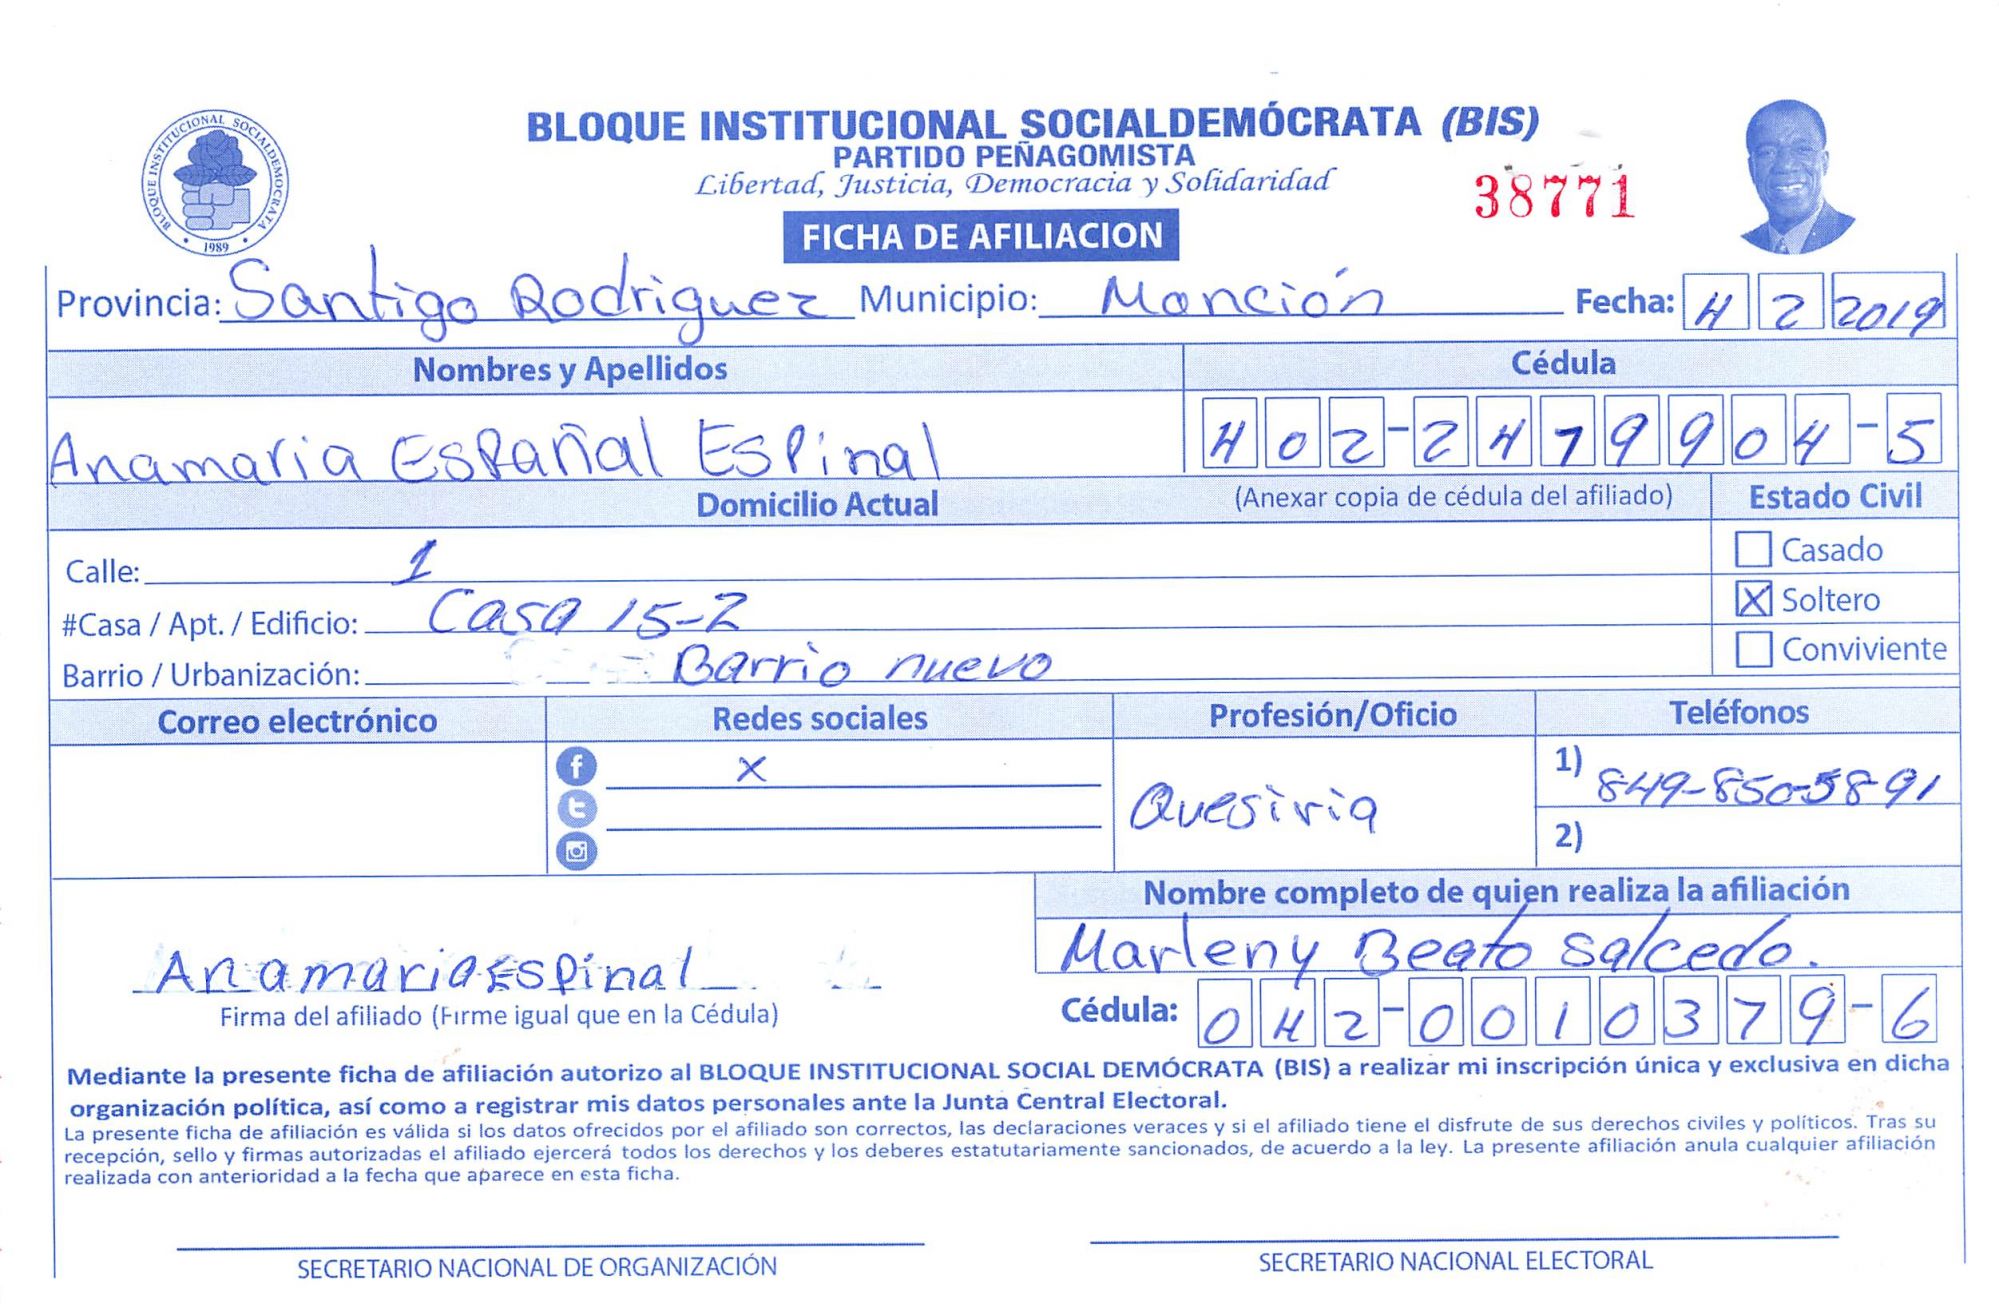 BLOQUE INSTITUCIONAL SOCIALDEMOCRATA
1989
BLOQUE INSTITUCIONAL SOCIALDEMÓCRATA (BIS)
PARTIDO PEÑAGOMISTA
Libertad, Justicia, Democracia y Solidaridad
38771
FICHA DE AFILIACION
Provincia: Santigo Rodriguez Municipio: Monción Fecha: 4 2 2019
Nombres y Apellidos Cédula
Anamaria Españal Espinal 402-2479904-5
Domicilio Actual (Anexar copia de cédula del afiliado) Estado Civil
Calle: 1 Casado
#Casa / Apt. / Edificio: Casa 15-2 X Soltero
Barrio / Urbanización: Barrio nuevo Conviviente
Correo electrónico Redes sociales Profesión/Oficio Teléfonos
X Quesiria 1) 849-850-5891
2)
Nombre completo de quien realiza la afiliación
Marleny Beato Salcedo.
Anamaria Espinal
Firma del afiliado (Firme igual que en la Cédula) Cédula: 042-0010379-6
Mediante la presente ficha de afiliación autorizo al BLOQUE INSTITUCIONAL SOCIAL DEMÓCRATA (BIS) a realizar mi inscripción única y exclusiva en dicha
organización política, así como a registrar mis datos personales ante la Junta Central Electoral.
La presente ficha de afiliación es válida si los datos ofrecidos por el afiliado son correctos, las declaraciones veraces y si el afiliado tiene el disfrute de sus derechos civiles y políticos. Tras su
recepción, sello y firmas autorizadas el afiliado ejercerá todos los derechos y los deberes estatutariamente sancionados, de acuerdo a la ley. La presente afiliación anula cualquier afiliación
realizada con anterioridad a la fecha que aparece en esta ficha.
SECRETARIO NACIONAL DE ORGANIZACIÓN SECRETARIO NACIONAL ELECTORAL